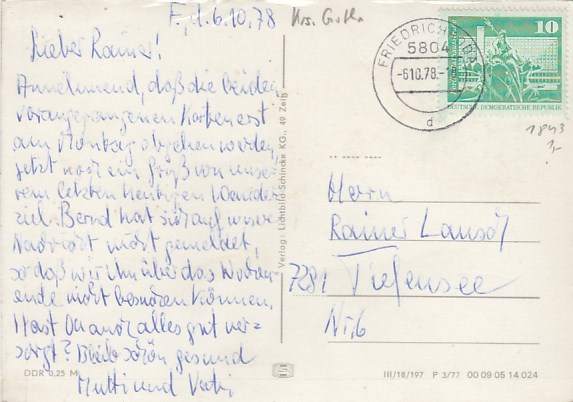 F., d. 6.10.78
Lieber Rainer!
Annehmend, daß die beiden
vorangegangenen Karten erst
am Montag abgehen werden,
jetzt noch ein Gruß von unse-
rem letzten heutigen Wander-
ziel. Bernd hat sich auf unsere
Nachricht nicht gemeldet,
so daß wir ihn über das Wochen-
ende nicht besuchen können.
Hast Du auch alles gut ver-
sorgt? Bleib schön gesund
Mutti und Vati
DDR 0,25 M
Verlag: Lichtbild-Schincke KG., 49 Zeitz
FRIEDRICHRODA
5804
-6.10.78.-
d
10
DEUTSCHE DEMOKRATISCHE REPUBLIK
1843
1,-
Herrn
Rainer
7281 Tiefensee
Nr. 6
III/18/197 P 3/77 00 09 05 14 024